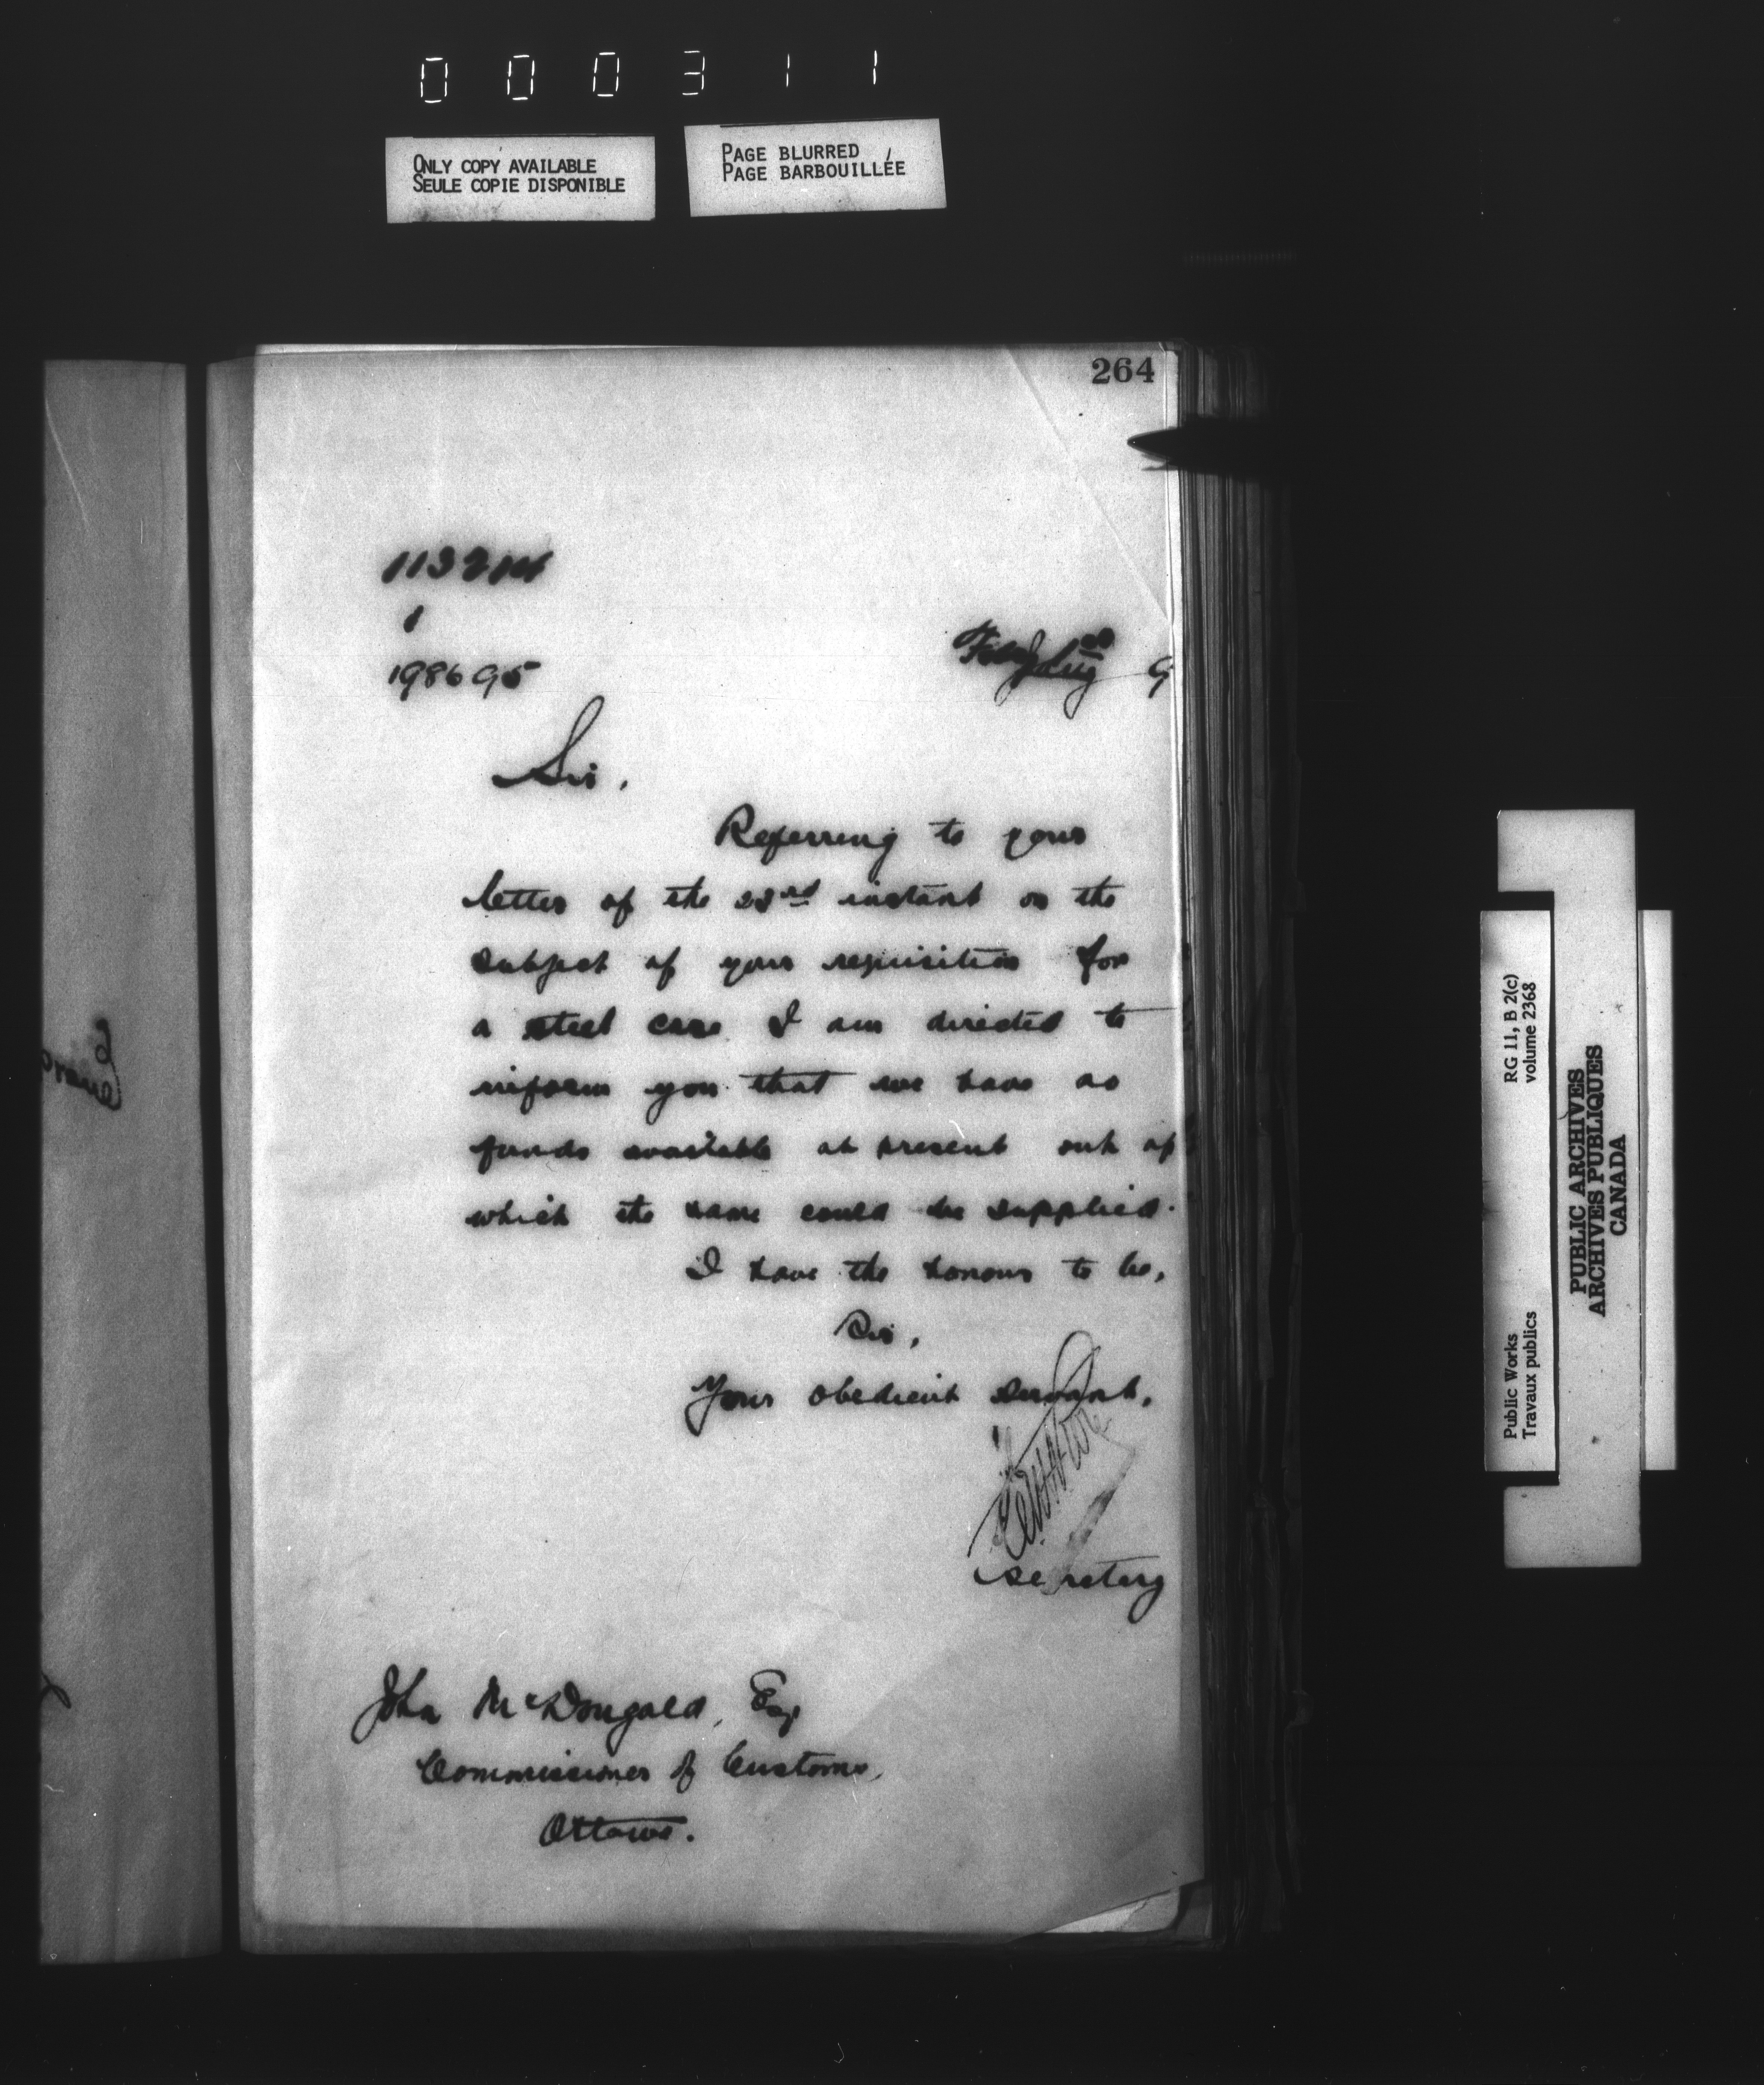 000311
ONLY COPY AVAILABLE
SEULE COPIE DISPONIBLE
PAGE BLURRED
PAGE BARBOUILLÉE
264
198695
Sir,
Referring to your
letter of the 23rd instant on the
subject of your requisition for
a steel case I am directed to
inform you that we have no
funds available at present out of
which the same could be supplied.
I have the honour to be,
Sir,
Your obedient servant,
Secretary
John McDougald, Esq
Commissioner of Customs,
Ottawa.
RG 11, B 2(c)
volume 2368
Public Works
Travaux publics
PUBLIC ARCHIVES
ARCHIVES PUBLIQUES
CANADA